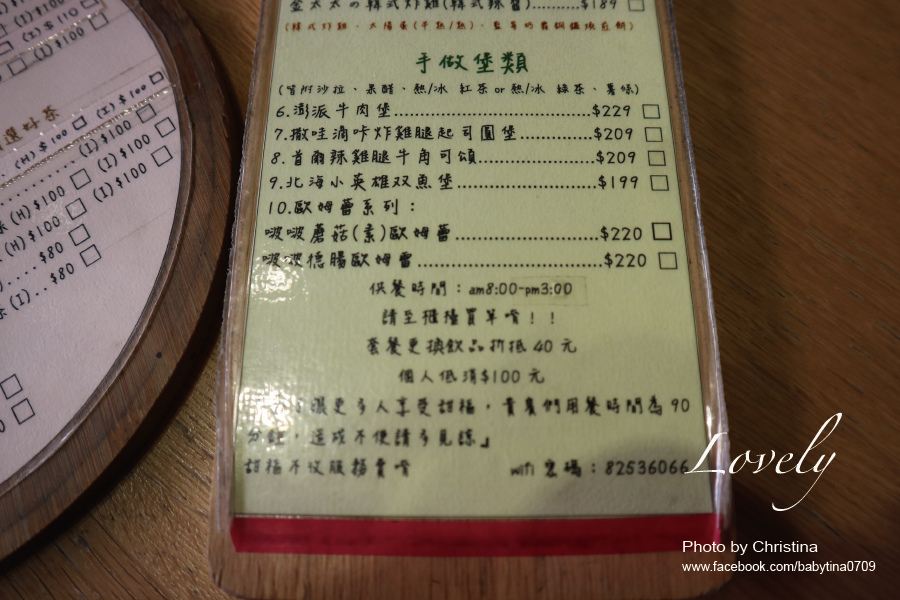 金太太の韓式炸雞(韓式辣醬)..........$189 □
手做堡類
(皆附沙拉、果醋、熱/冰 紅茶 or 熱/冰 綠茶、薯條)
6.澎派牛肉堡..........$229 □
7.撒哇滴咔炸雞腿起司圓堡..........$209 □
8.首爾辣雞腿牛角可頌..........$209 □
9.北海小英雄双魚堡..........$199 □
10.歐姆蕾系列:
啵啵蘑菇(素)歐姆蕾..........$220 □
啵啵德腸歐姆蕾..........$220 □
供餐時間:am8:00-pm3:00
請至櫃檯買單唷!!
套餐更換飲品折抵40元
個人低消$100元
跟更多人享受甜福,貴賓們用餐時間為90
分鐘,造成不便請多見諒』
甜福不收服務費唷
wifi 密碼:82536066
選好茶
(H)$100 □ (I)$100 □
(I)$100 □
(H)$100 □ (I)$100 □
(H)$100 □
$80 □
(I)..$80 □
Lovely
Photo by Christina
www.facebook.com/babytina0709